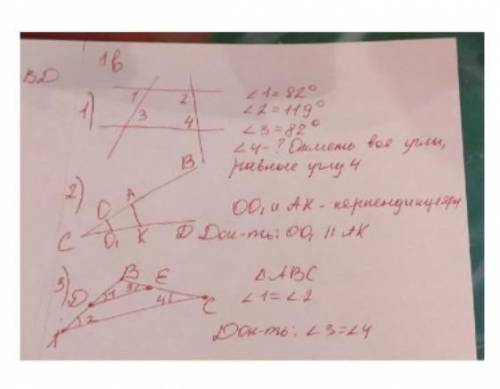 BD
1в
1)
1 2
3 4
∠1=82°
∠2=119°
∠3=82°
∠4-? Отметь все углы,
равные углу 4
2)
B
A
O
C O₁ K D
OO₁ и AK - перпендикуляры
Док-ть: OO₁ || AK
3)
B E
D 1 3
4 C
A 2
△ABC
∠1=∠2
Док-ть: ∠3=∠4